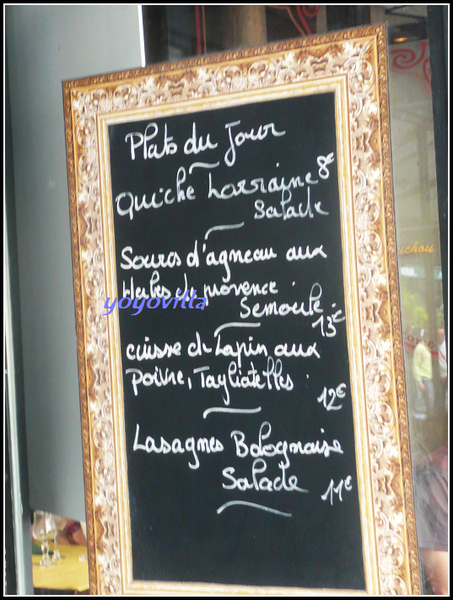 Plats du Jour
Quiche Lorraine 8€
Salade
Souris d'agneau aux
Herbes de provence
Semoule 13€
cuisse de Lapin aux
poivre, Tagliatelles
12€
Lasagnes Bolognaise
Salade 11€
yoyovilla